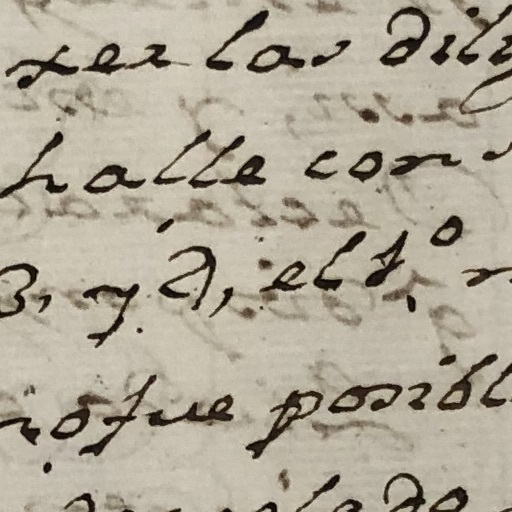 xer las dili
halle con
3, y D, el fo
no fue posibl